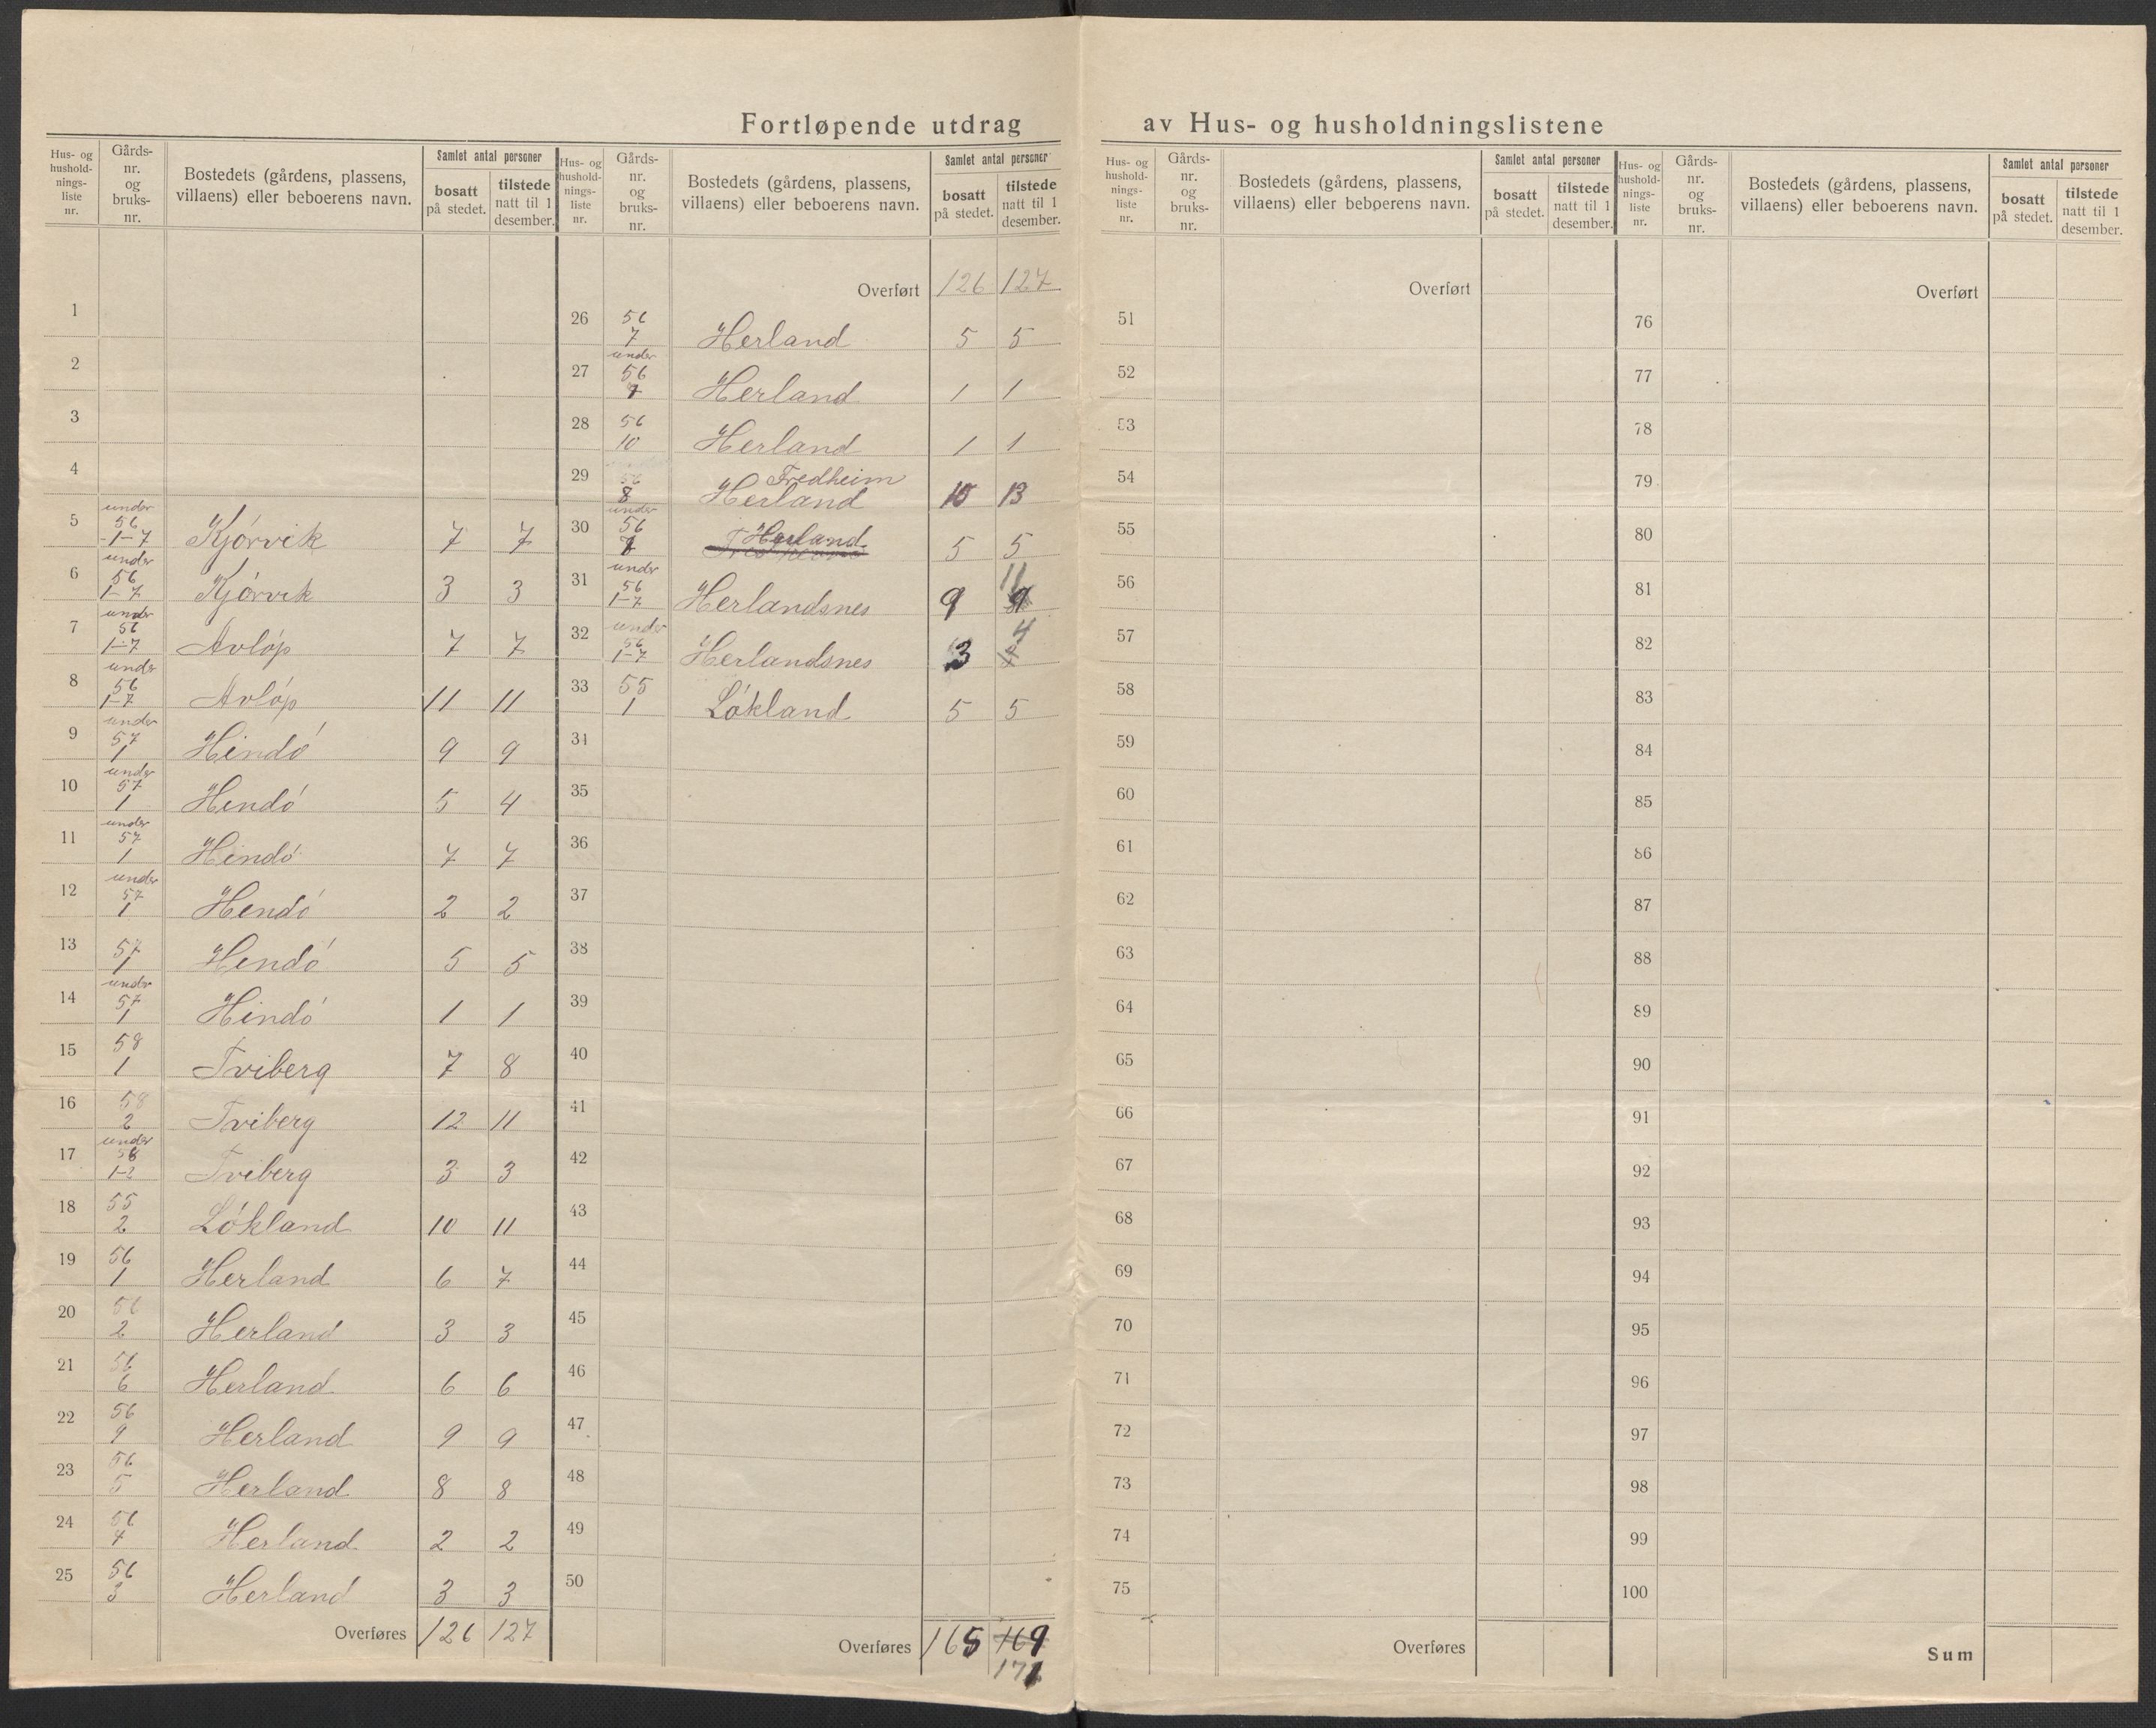 Fortløpende utdrag av Hus- og husholdningslistene
Hus- og husholdningsliste nr. Gårds-nr. og bruks-nr. Bostedets (gårdens, plassens, villaens) eller beboerens navn. Samlet antal personer bosatt på stedet. tilstede natt til 1 desember.
1
2
3
4
5 under 56 1-7 Kjørvik 7 7
6 under 56 1-7 Kjørvik 3 3
7 under 56 1-7 Avløp 7 7
8 under 56 1-7 Avløp 11 11
9 under 57 1 Hindø 9 9
10 under 57 1 Hindø 5 4
11 under 57 1 Hindø 7 7
12 under 57 1 Hindø 2 2
13 57 1 Hindø 5 5
14 under 57 1 Hindø 1 1
15 58 1 Tviberg 7 8
16 58 2 Tviberg 12 11
17 under 58 1-2 Tviberg 3 3
18 55 2 Løkland 10 11
19 56 1 Herland 6 7
20 56 2 Herland 3 3
21 56 6 Herland 6 6
22 56 9 Herland 9 9
23 56 5 Herland 8 8
24 56 4 Herland 2 2
25 56 3 Herland 3 3
Overføres 126 127
Hus- og husholdningsliste nr. Gårds-nr. og bruks-nr. Bostedets (gårdens, plassens, villaens) eller beboerens navn. Samlet antal personer bosatt på stedet. tilstede natt til 1 desember.
Overført 126 127
26 56 7 Herland 5 5
27 under 56 7 Herland 1 1
28 56 10 Herland 1 1
29 56 8 Fredheim Herland 10 13
30 under 56 Herland 5 5
31 under 56 1-7 Herlandsnes 9 11
32 under 56 1-7 Herlandsnes 3 4
33 55 1 Løkland 5 5
34
35
36
37
38
39
40
41
42
43
44
45
46
47
48
49
50
Overføres 165 169
171
Hus- og husholdningsliste nr. Gårds-nr. og bruks-nr. Bostedets (gårdens, plassens, villaens) eller beboerens navn. Samlet antal personer bosatt på stedet. tilstede natt til 1 desember.
Overført
51
52
53
54
55
56
57
58
59
60
61
62
63
64
65
66
67
68
69
70
71
72
73
74
75
Overføres
Hus- og husholdningsliste nr. Gårds-nr. og bruks-nr. Bostedets (gårdens, plassens, villaens) eller beboerens navn. Samlet antal personer bosatt på stedet. tilstede natt til 1 desember.
Overført
76
77
78
79
80
81
82
83
84
85
86
87
88
89
90
91
92
93
94
95
96
97
98
99
100
Sum